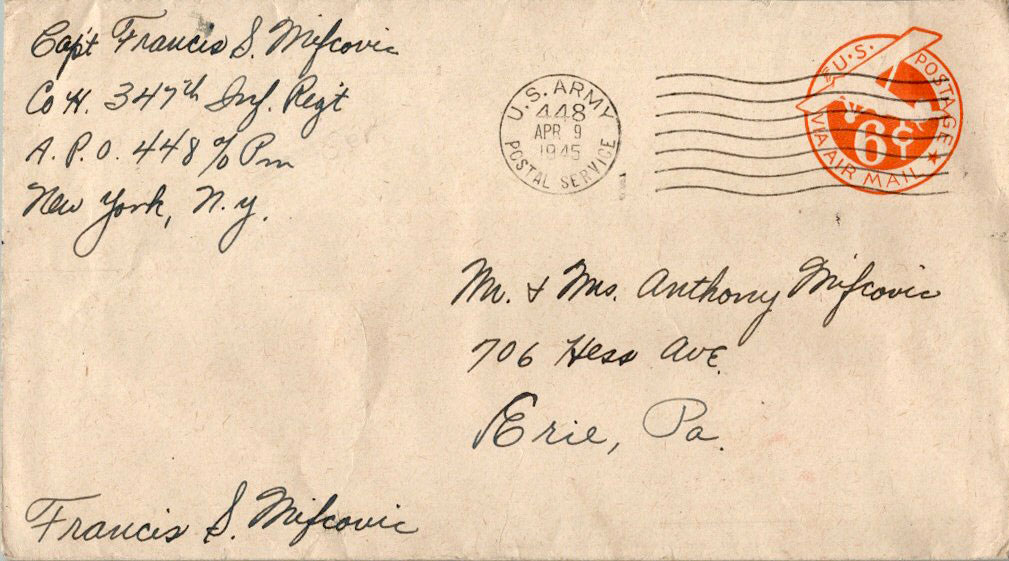 Capt Francis S. Mifcovic
Co H. 347th Inf. Reg't
A.P.O. 448 c/o Pm
New York, N.Y.
U.S. ARMY
448
APR 9
1945
POSTAL SERVICE
U.S. POSTAGE
6¢
VIA AIR MAIL
Mr. & Mrs. Anthony Mifcovic
706 Hess Ave.
Erie, Pa.
Francis S. Mifcovic